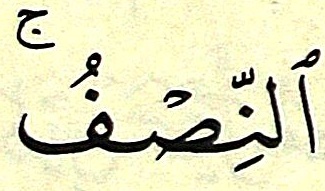 ٱلنِّصْفُۚ